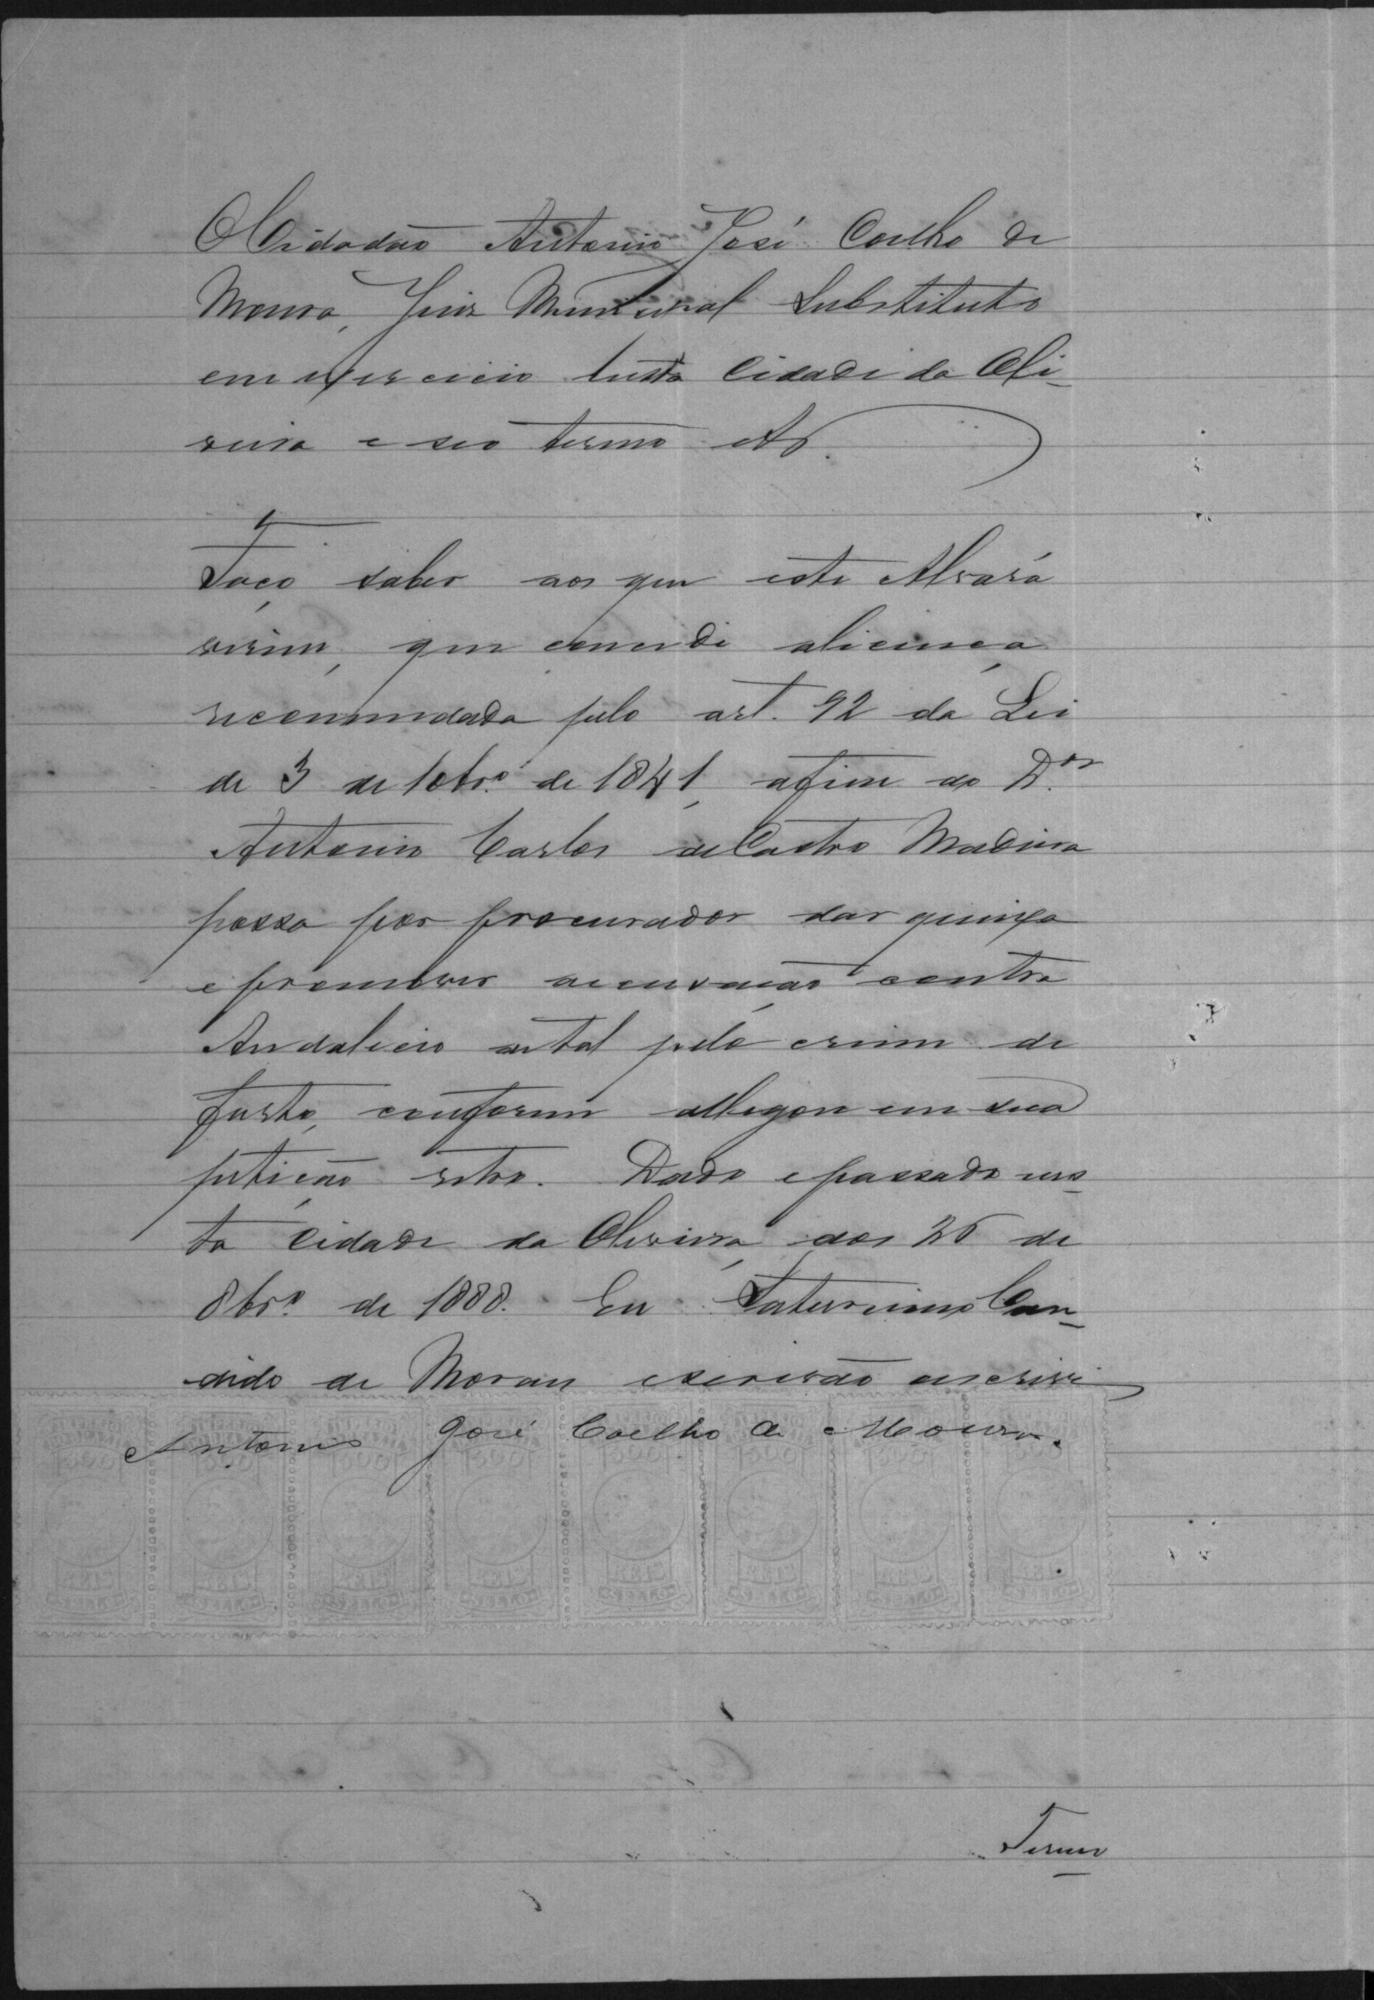 O Cidadão Antonio José Coelho de
Moura, Juiz Municipal Substituto
em exercicio nesta Cidade da Oli-
veira e seo termo etc.
Faço saber aos que este Alvará
virem, que concedi alicença
recommendada pelo art. 92 da Lei
de 3 de 10brº de 1841, afim do Dor
Antonio Carlos de Castro Madeira
possa por procurador dar queixa
e promover accusação contra
Andalecio de tal pelo crime de
furto, conforme allegou em sua
petição retro. Dado e passado nes-
ta Cidade da Oliveira, aos 26 de
8brº de 1888. Eu Saturnino Can-
dido de Moraes escrivão escrivi
Antonio José Coelho de Moura.
500 500 500 500 500 500 500 500
REIS REIS REIS REIS REIS REIS REIS REIS
Termo